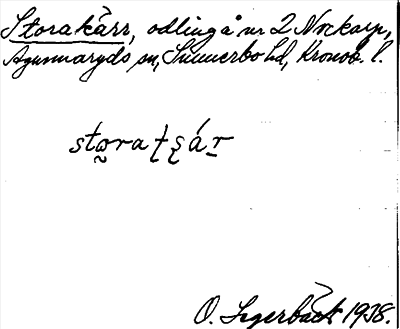 Storakärr, odling å nr 2 Nockarp,
Agunnaryds sn, Sunnerbo hd, Kronob. l.
O. Segerbäck 1938.